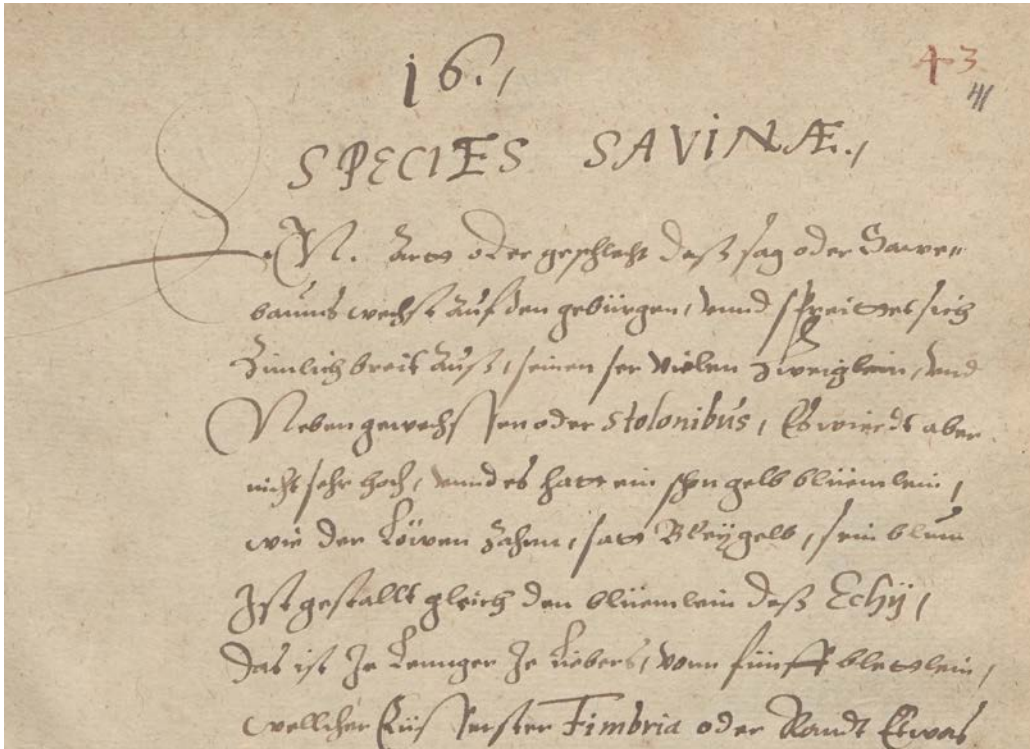 16.,
43
41
SPECIES SAVINÆ.,
EIN. Artt oder geschlecht deß sag oder Sawe„
baums wechst Auf den gebürgen, vnnd spreittet sich
Zimlich breit Auß, seinen ser vielen Zweiglein, vnd
Neben gewechssen oder stolonibus, Es wierdt aber
nicht sehr hoch, vnnd es hatt ein schen gelb blüemlein,
wie der Löwen Zahnn, satt Bleÿgelb, sein blum
Ist gestallt gleich den blüemlein deß Echÿ,
das ist Je Lenнger Je Liebers, vonn fünff bletlein,
wellcher Eüsserster Fimbria oder Randt Etwas